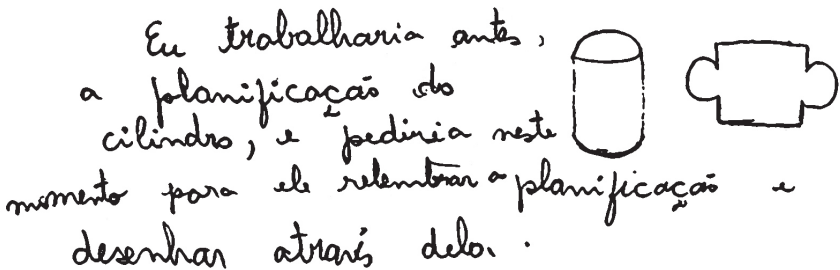 Eu trabalharia antes,
a planificação do
cilindro, e pediria neste
momento para ele relembrar a planificação e
desenhar através dela.